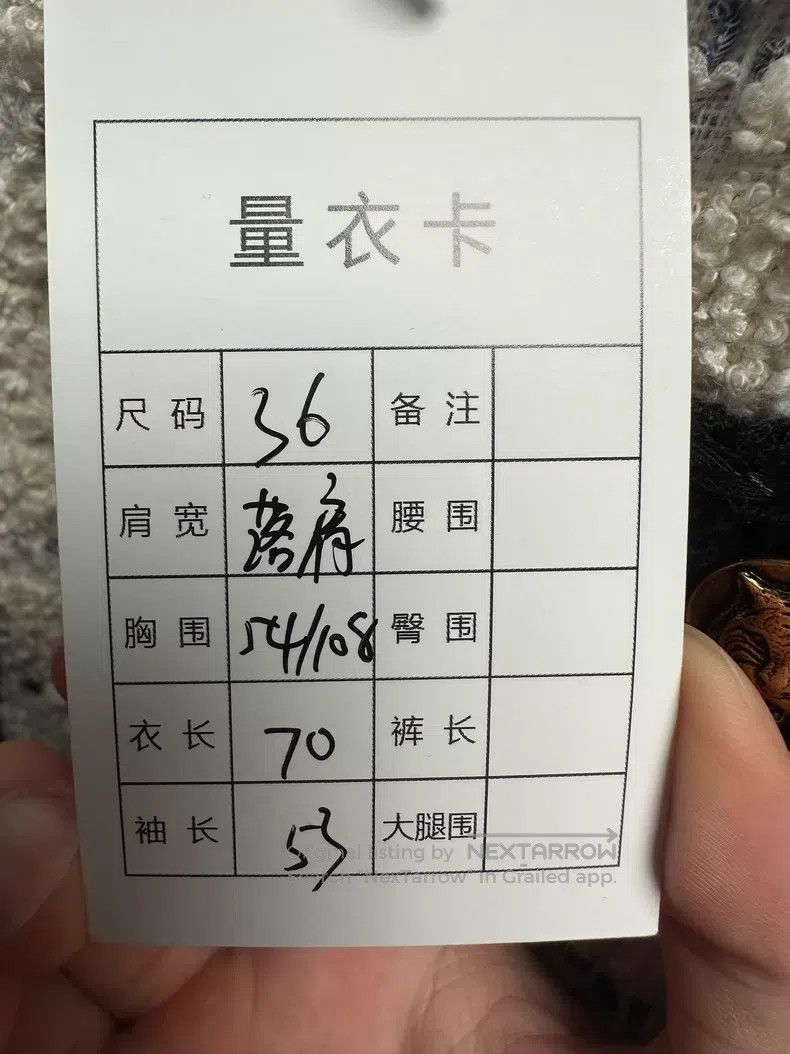 量衣卡
尺码 36 备注
肩宽 落肩 腰围
胸围 54/108 臀围
衣长 70 裤长
袖长 53 大腿围
Original listing by NEXTARROW
Search "NexTarrow" in Grailed app.